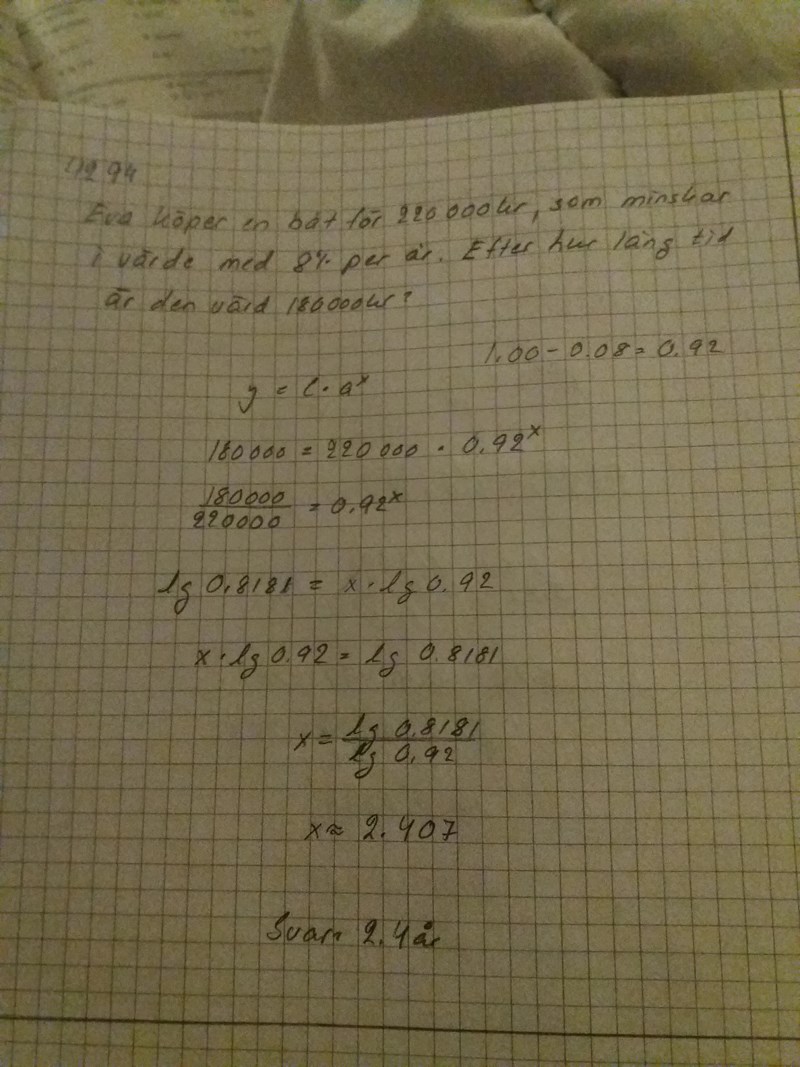 1) 294
Eva köper en båt för 220 000kr, som minskar
i värde med 8% per år. Efter hur lång tid
är den värd 180000kr?
1.00 - 0.08 = 0.92
y = C · a^x
180000 = 220 000 · 0.92^x
180000/220000 = 0.92^x
lg 0.8181 = x · lg 0.92
x · lg 0.92 = lg 0.8181
x = lg 0.8181/lg 0.92
x ≈ 2.407
Svar: 2.4 år